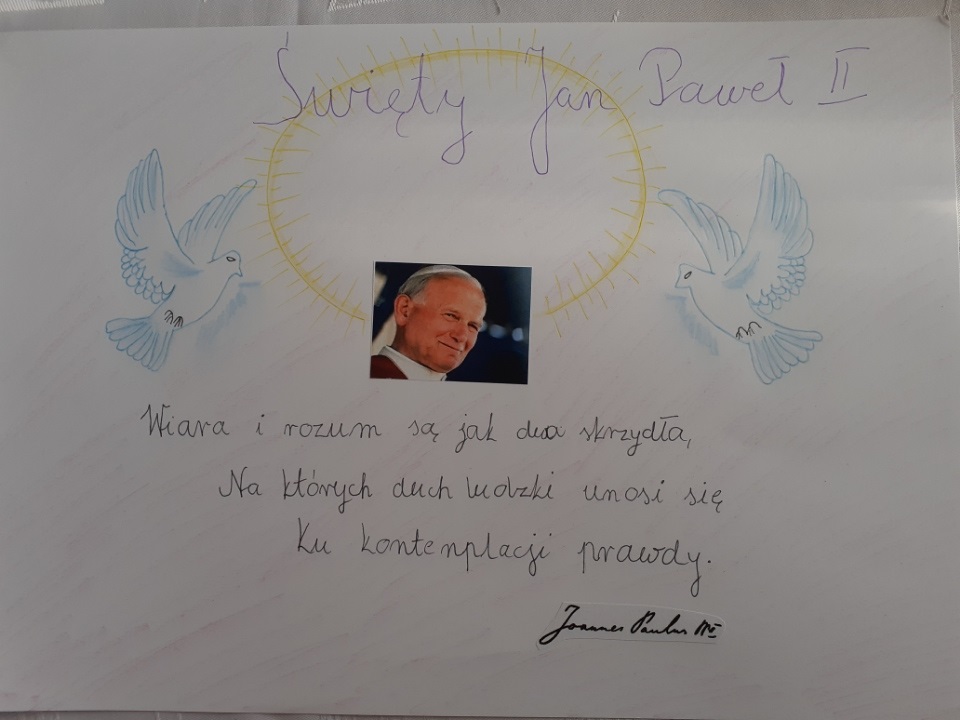 Święty Jan Paweł II
Wiara i rozum są jak dwa skrzydła,
Na których duch ludzki unosi się
Ku kontenplacji prawdy.
Joannes Paulus II